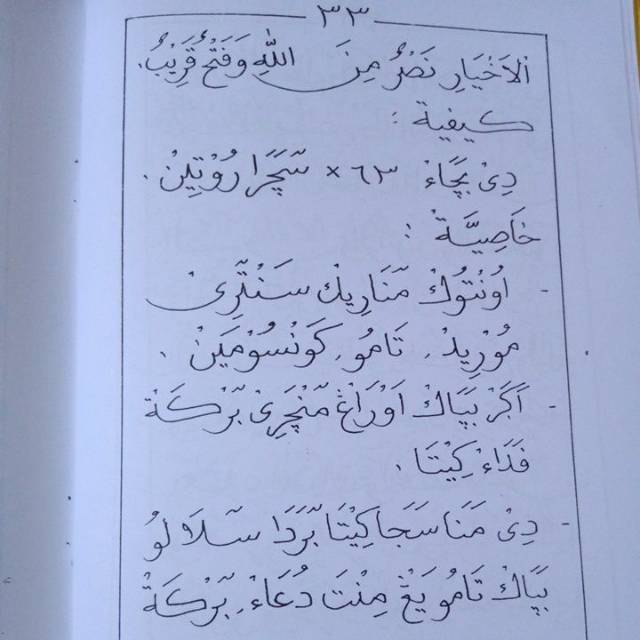 ٣٣
الْاَخْيَارِ نَصْرٌ مِنَ اللّٰهِ وَفَتْحٌ قَرِيْبٌ.
كيفية :
دِيْ بَچَاءْ ٦٣ × سٓچَارَا رُوْتِيْنْ .
خَاصِيَّةْ :
- اُوْنْتُوْكْ مٓنَارِيْكْ سَنْتْرِيْ
مُوْرِيْدْ، تَامُوْ، كَوْنْسُوْمَيْنْ .
- اَڮَرْ بَيَاكْ اَوْرَاڠْ مٓنْچَرِيْ بٓرْكَةْ
فَدَاءْ كِيْتَا .
- دِيْ مَنَا سَجَا كِيْتَا بٓرَدَا سٓلَا لُوْ
بَيَاكْ تَامُوْ يَڠْ مِنْتَ دُعَاءْ، بٓرْكَةْ